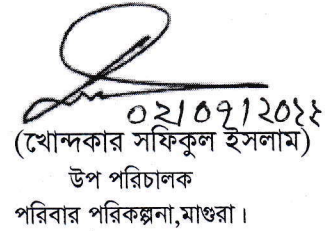 (খোন্দকার সফিকুল ইসলাম)
উপ পরিচালক
পরিবার পরিকল্পনা,মাগুরা।